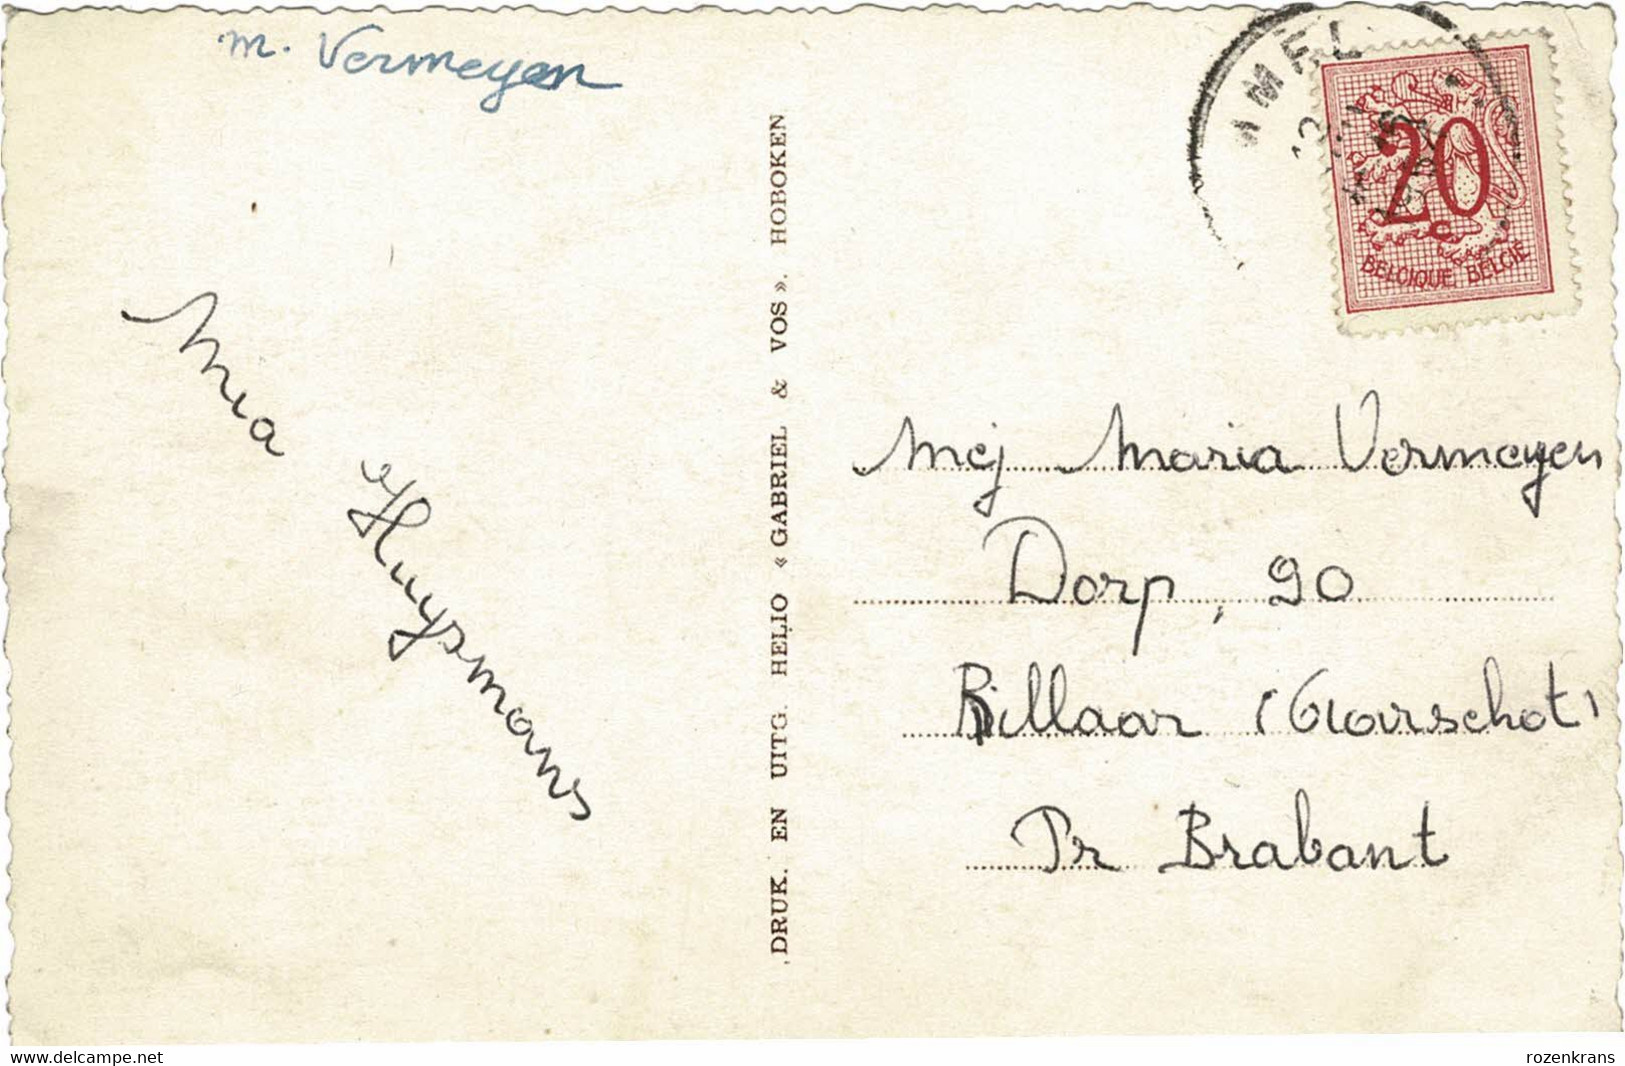 m. Vermeyen
Mia Huysmans
DRUK. EN UITG. HELIO « GABRIEL & VOS ». HOBOKEN
20
c
BELGIQUE BELGIË
Mej Maria Vermeyen
Dorp, 90
Rillaar (Aarschot)
Pr Brabant
www.delcampe.net
rozenkrans